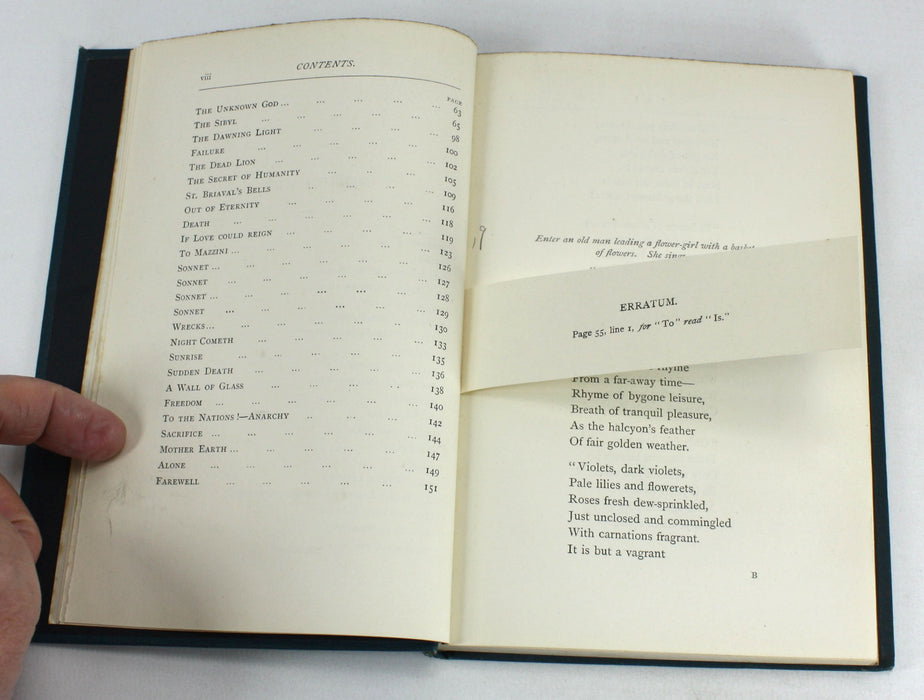 viii
CONTENTS.
PAGE
The Unknown God ... ... ... ... ... 63
The Sibyl ... ... ... ... ... 65
The Dawning Light ... ... ... 98
Failure ... ... ... ... ... 100
The Dead Lion ... ... ... ... ... 102
The Secret of Humanity ... ... ... 105
St. Briaval's Bells ... ... ... 109
Out of Eternity ... ... ... ... 116
Death ... ... ... ... ... 118
If Love could reign ... ... ... ... 119
To Mazzini ... ... ... ... ... 123
Sonnet ... ... ... ... ... 126
Sonnet ... ... ... ... ... 127
Sonnet ... ... ... ... ... 128
Sonnet ... ... ... ... ... 129
Wrecks... ... ... ... ... 130
Night Cometh ... ... ... ... 133
Sunrise ... ... ... ... ... 135
Sudden Death ... ... ... ... 136
A Wall of Glass ... ... ... ... 138
Freedom ... ... ... ... ... 140
To the Nations!—Anarchy ... ... ... 142
Sacrifice ... ... ... ... ... 144
Mother Earth ... ... ... ... ... 147
Alone ... ... ... ... ... 149
Farewell ... ... ... ... ... 151
Enter an old man leading a flower-girl with a
of flowers. She
ERRATUM.
Page 55, line 1, for "To" read "Is."
From a far-away time—
Rhyme of bygone leisure,
Breath of tranquil pleasure,
As the halcyon's feather
Of fair golden weather.
"Violets, dark violets,
Pale lilies and flowerets,
Roses fresh dew-sprinkled,
Just unclosed and commingled
With carnations fragrant.
It is but a vagrant
B